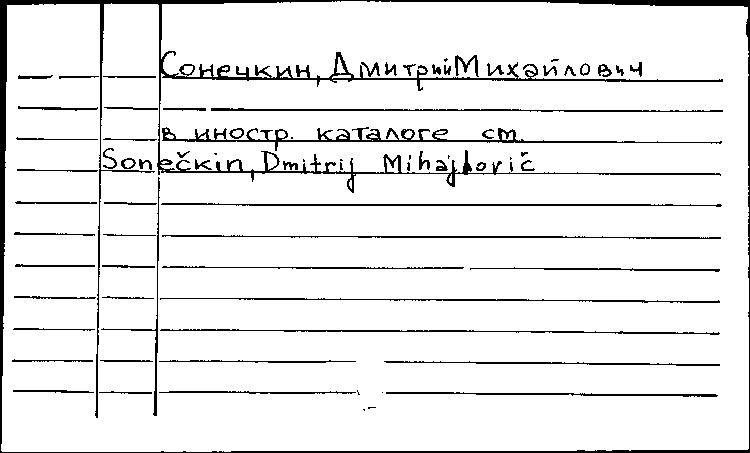 Сонечкин, Дмитрий Михайлович
в иностр. каталоге см.
Sonečkin, Dmitrij Mihajlovič